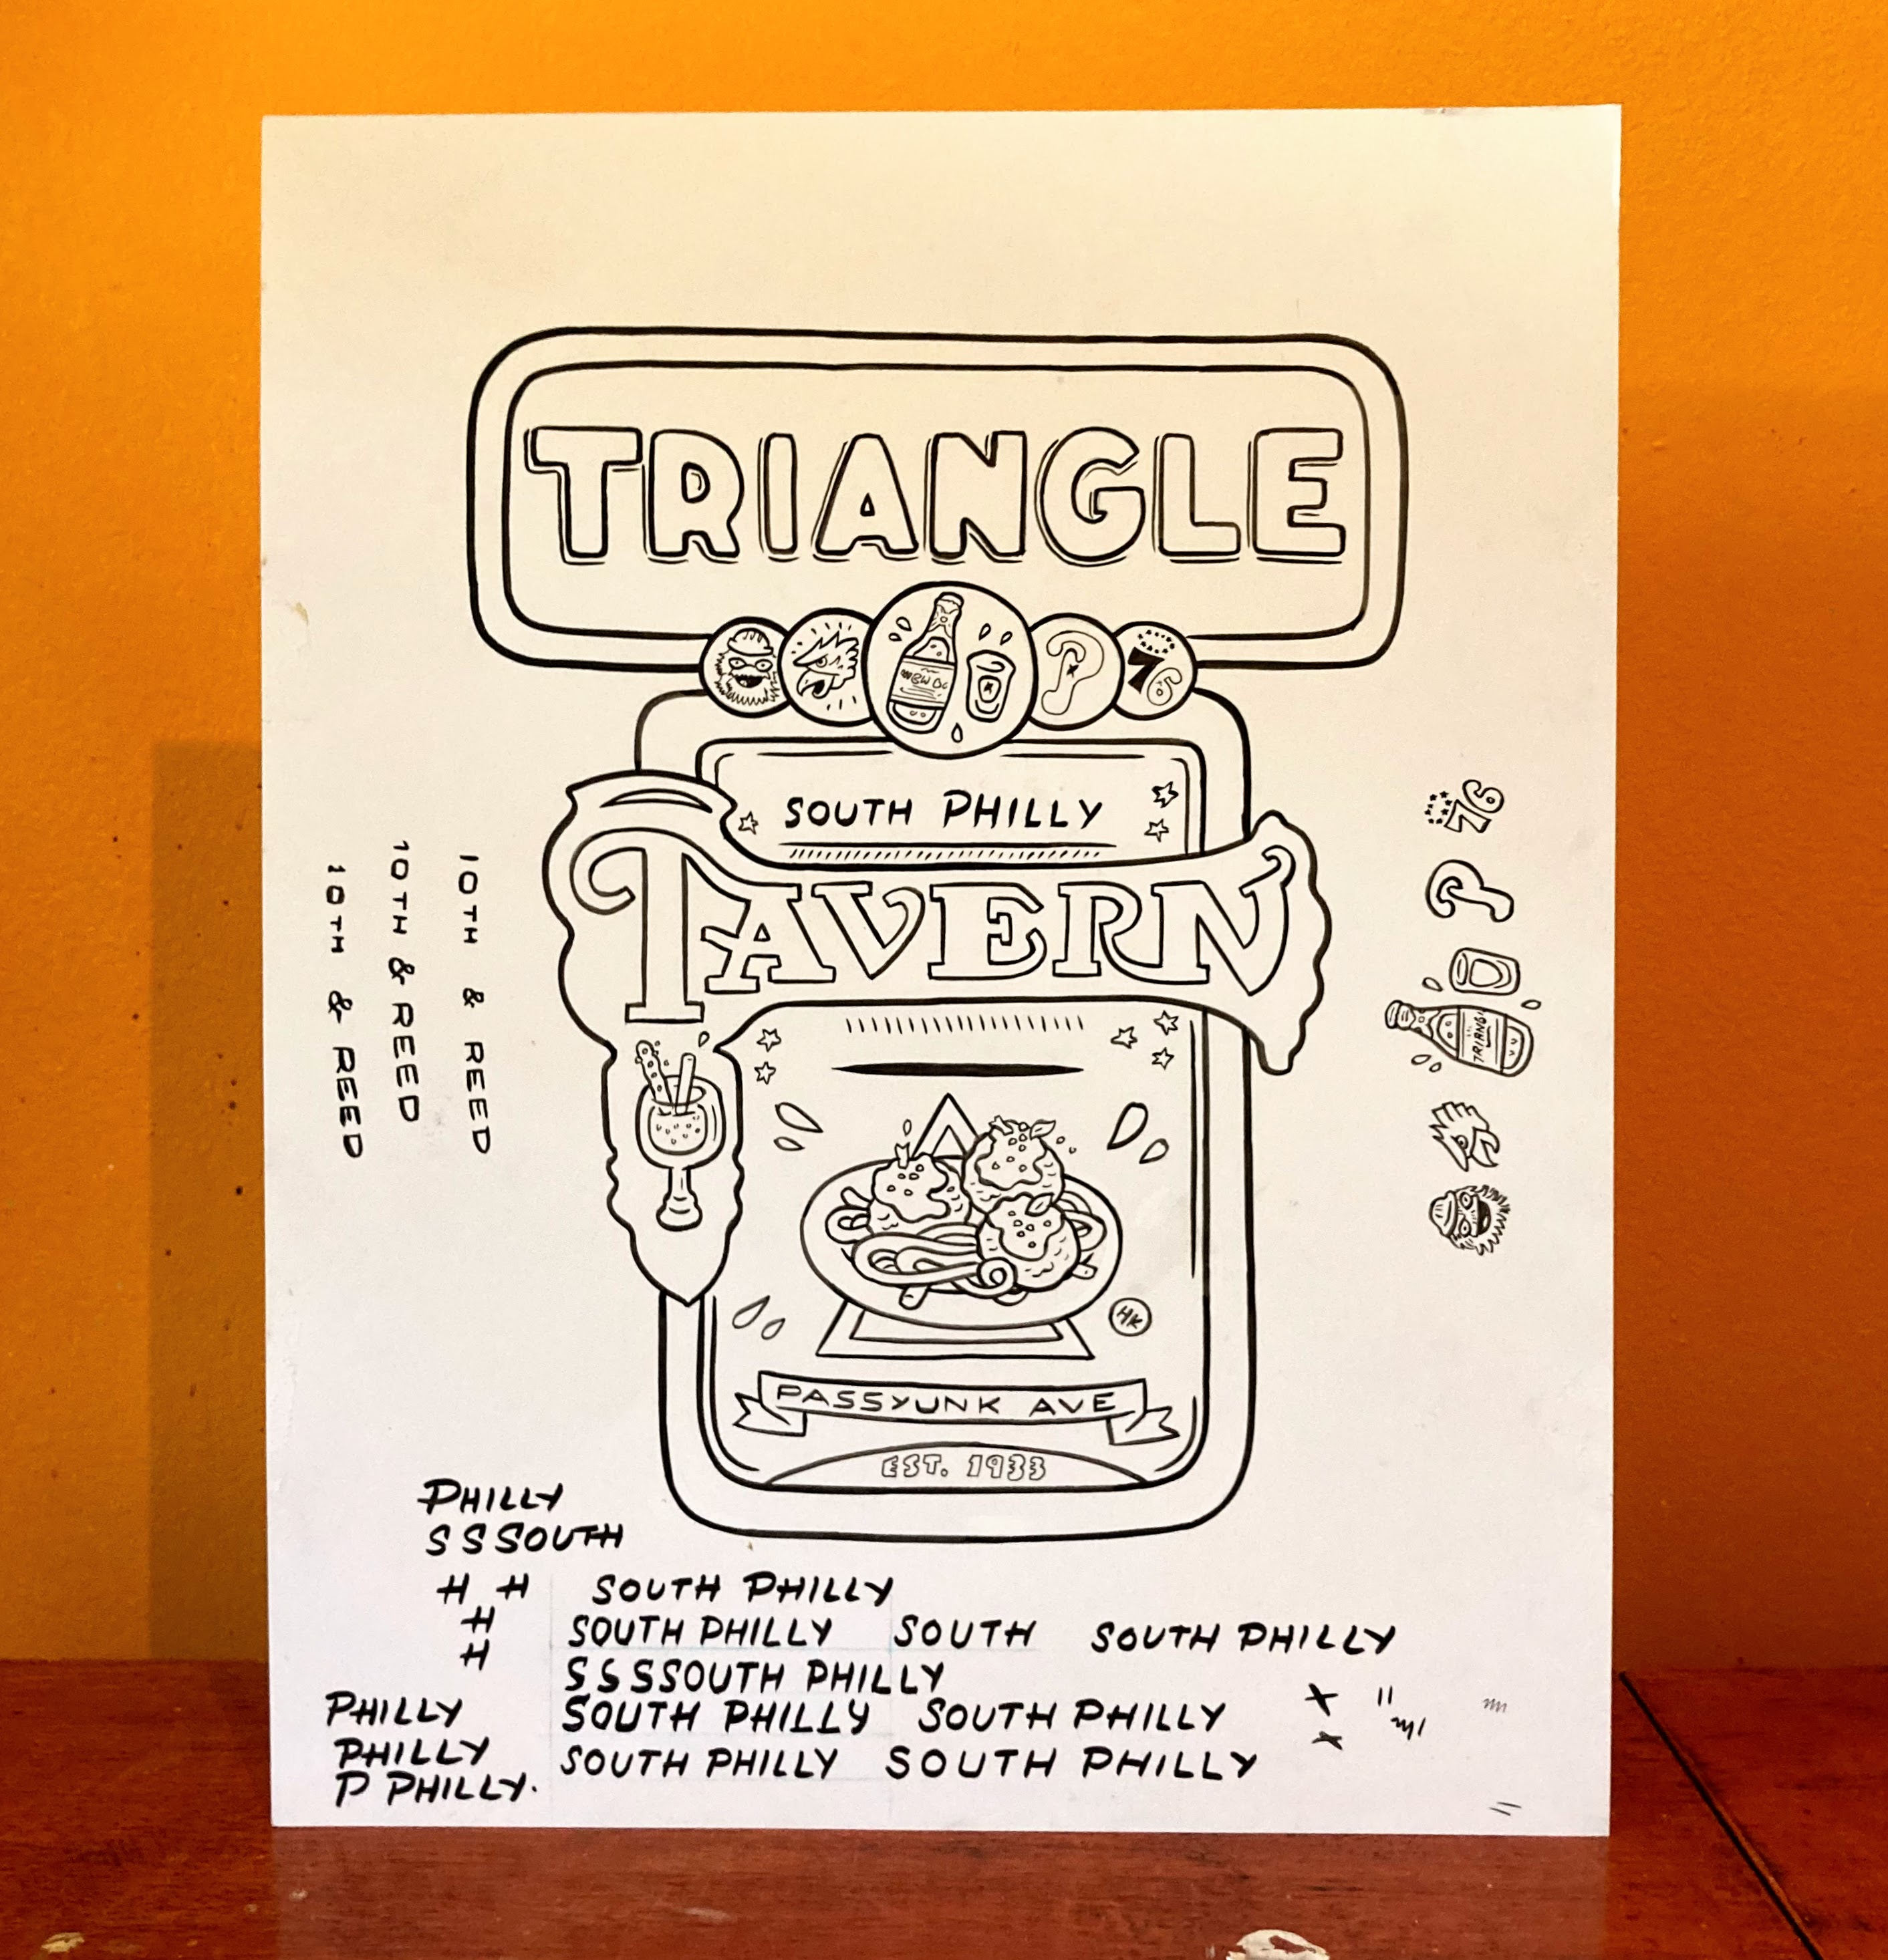 TRIANGLE
P
76
SOUTH PHILLY
TAVERN
HK
PASSYUNK AVE
EST. 1933
10TH & REED
10TH & REED
10TH & REED
76
P
TRIANGL
PHILLY
S S SOUTH
H H
H
H
SOUTH PHILLY
SOUTH PHILLY SOUTH SOUTH PHILLY
S S SSOUTH PHILLY
SOUTH PHILLY SOUTH PHILLY
SOUTH PHILLY SOUTH PHILLY
PHILLY
PHILLY
P PHILLY.